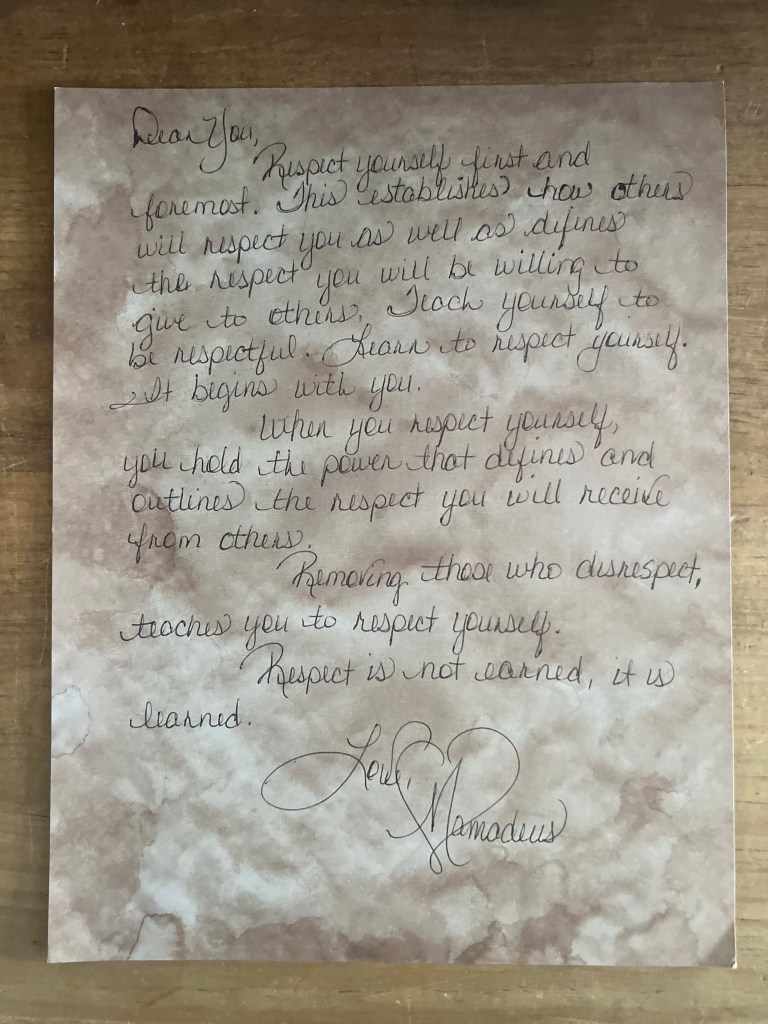 Dear You,
Respect yourself first and
foremost. This establishes how others
will respect you as well as defines
the respect you will be willing to
give to others. Teach yourself to
be respectful. Learn to respect yourself.
It begins with you.
When you respect yourself,
you hold the power that defines and
outlines the respect you will receive
from others.
Removing those who disrespect,
teaches you to respect yourself.
Respect is not earned, it is
learned.
Love,
Mamadeus